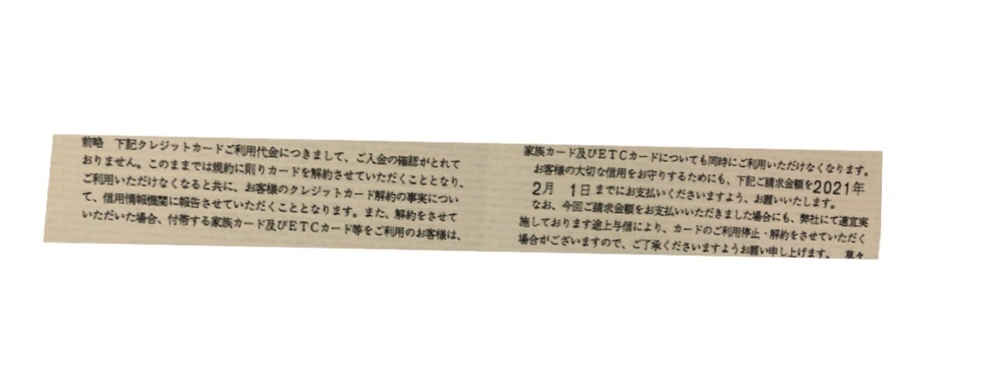 前略　下記クレジットカードご利用代金につきまして、ご入金の確認がとれて
おりません。このままでは規約に則りカードを解約させていただくこととなり、
ご利用いただけなくなると共に、お客様のクレジットカード解約の事実につい
て、信用情報機関に報告させていただくこととなります。また、解約をさせて
いただいた場合、付帯する家族カード及びETCカード等をご利用のお客様は、
家族カード及びETCカードについても同時にご利用いただけなくなります。
お客様の大切な信用をお守りするためにも、下記ご請求金額を2021年
2月　1日までにお支払いくださいますよう、お願いいたします。
なお、今回ご請求金額をお支払いいただきました場合にも、弊社にて適宜実
施しております途上与信により、カードのご利用停止・解約をさせていただく
場合がございますので、ご了承くださいますようお願い申し上げます。　草々